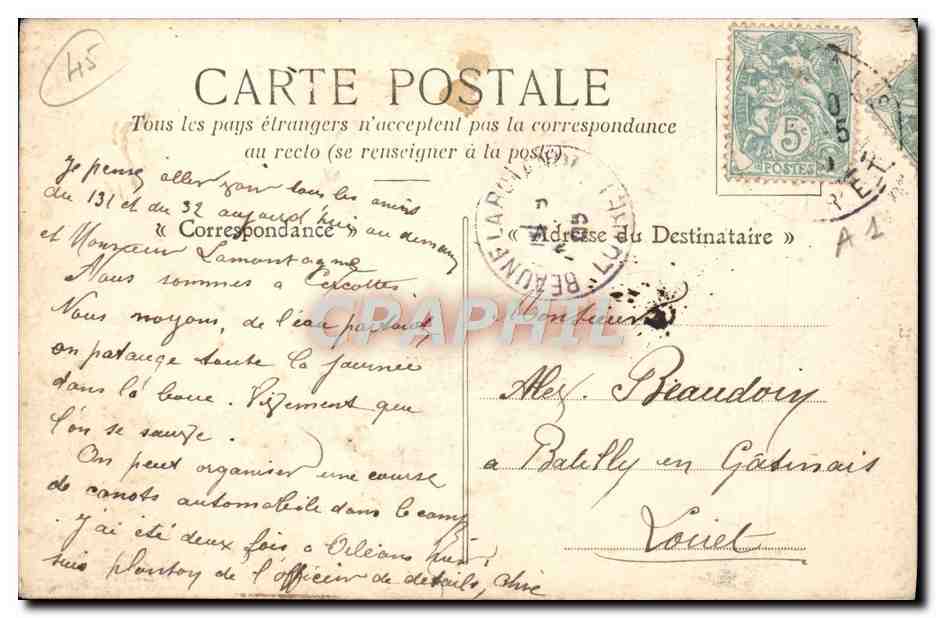 45
CARTE POSTALE
Tous les pays étrangers n'acceptent pas la correspondance
au recto (se renseigner à la poste)
5c
POSTES
BEAUNE LA ROLANDE
LOIRET
05
A 1
« Correspondance »
« Adresse du Destinataire »
Je pense aller voir tous les amis
du 131 et du 32 aujourd'hui ou demain
et Monsieur Lamontagne
Nous sommes à Cercottes
Nous noyons, de l'eau partout,
on patauge toute la journée
dans la boue. Vivement que
l'on se sauve.
On peut organiser une course
de canots automobile dans le camp
J'ai été deux fois à Orléans
suis planton de l'officier de détails,
Monsieur
Alex. Beaudoin
a Batilly en Gâtinais
Loiret
CPAPHIL